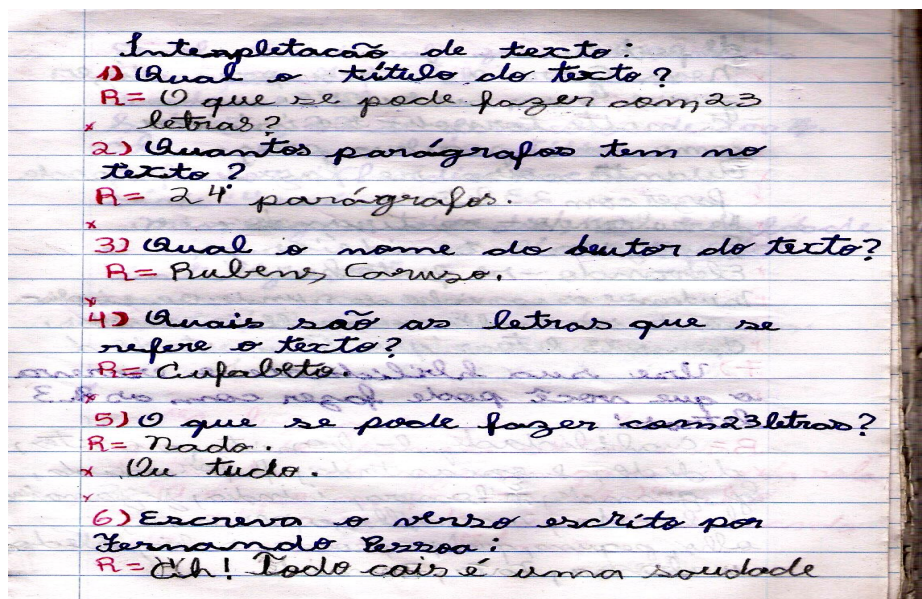 Interpletacão de texto:
1) Qual o título do texto?
R= O que se pode fazer com 23
x letras?
2) Quantos parágrafos tem no
texto?
R= 24 parágrafos.
x
3) Qual o nome do autor do texto?
R= Rubens Caruso.
x
4) Quais são as letras que se
refere o texto?
R= Aufabeto.
x
5) O que se pode fazer com 23 letras?
R= Nada.
x Ou tudo.
x
6) Escreva o verso escrito por
Fernando Pessoa:
R= Ah! Todo cais é uma saudade